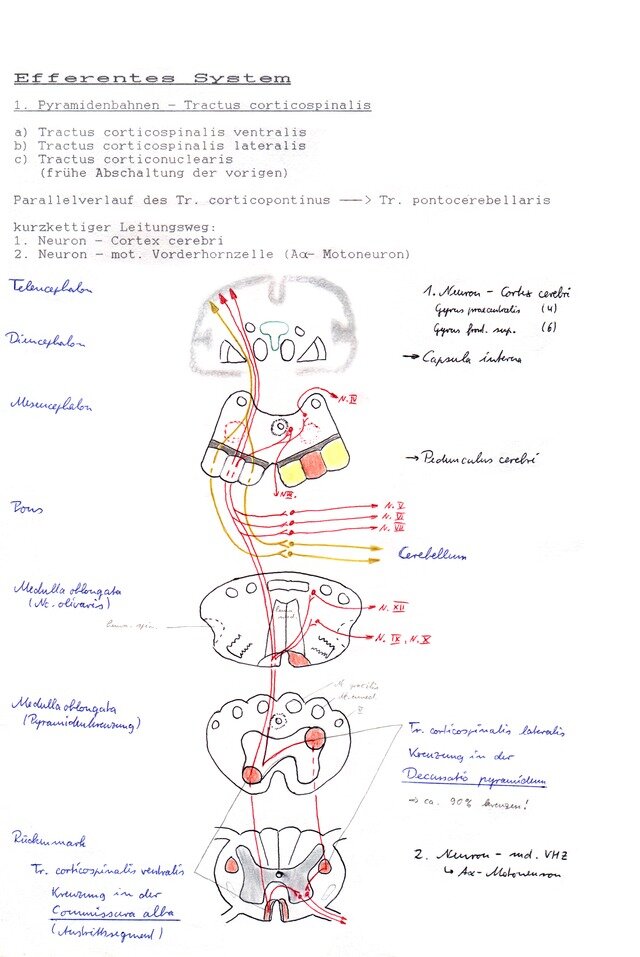 Efferentes System
1. Pyramidenbahnen - Tractus corticospinalis
a) Tractus corticospinalis ventralis
b) Tractus corticospinalis lateralis
c) Tractus corticonuclearis
(frühe Abschaltung der vorigen)
Parallelverlauf des Tr. corticopontinus ──> Tr. pontocerebellaris
kurzkettiger Leitungsweg:
1. Neuron - Cortex cerebri
2. Neuron - mot. Vorderhornzelle (Aα- Motoneuron)
Telencephalon
1. Neuron - Cortex cerebri
Gyrus praecentralis (4)
Gyrus front. sup. (6)
Diencephalon
→ Capsula interna
Mesencephalon
N. IV
→ Pedunculus cerebri
N III.
Pons
N. V
N. VI
N. VII
Cerebellum
Medulla oblongata
(Nc. olivaris)
N. XII
N. IX, N. X
Medulla oblongata
(Pyramidenkreuzung)
V
Tr. corticospinalis lateralis
Kreuzung in der
Decussatio pyramidum
→ ca. 90% kreuzen!
Rückenmark
Tr. corticospinalis ventralis
Kreuzung in der
Commissura alba
(Austrittssegment)
2. Neuron - md. VHZ
↳ Aα- Motoneuron